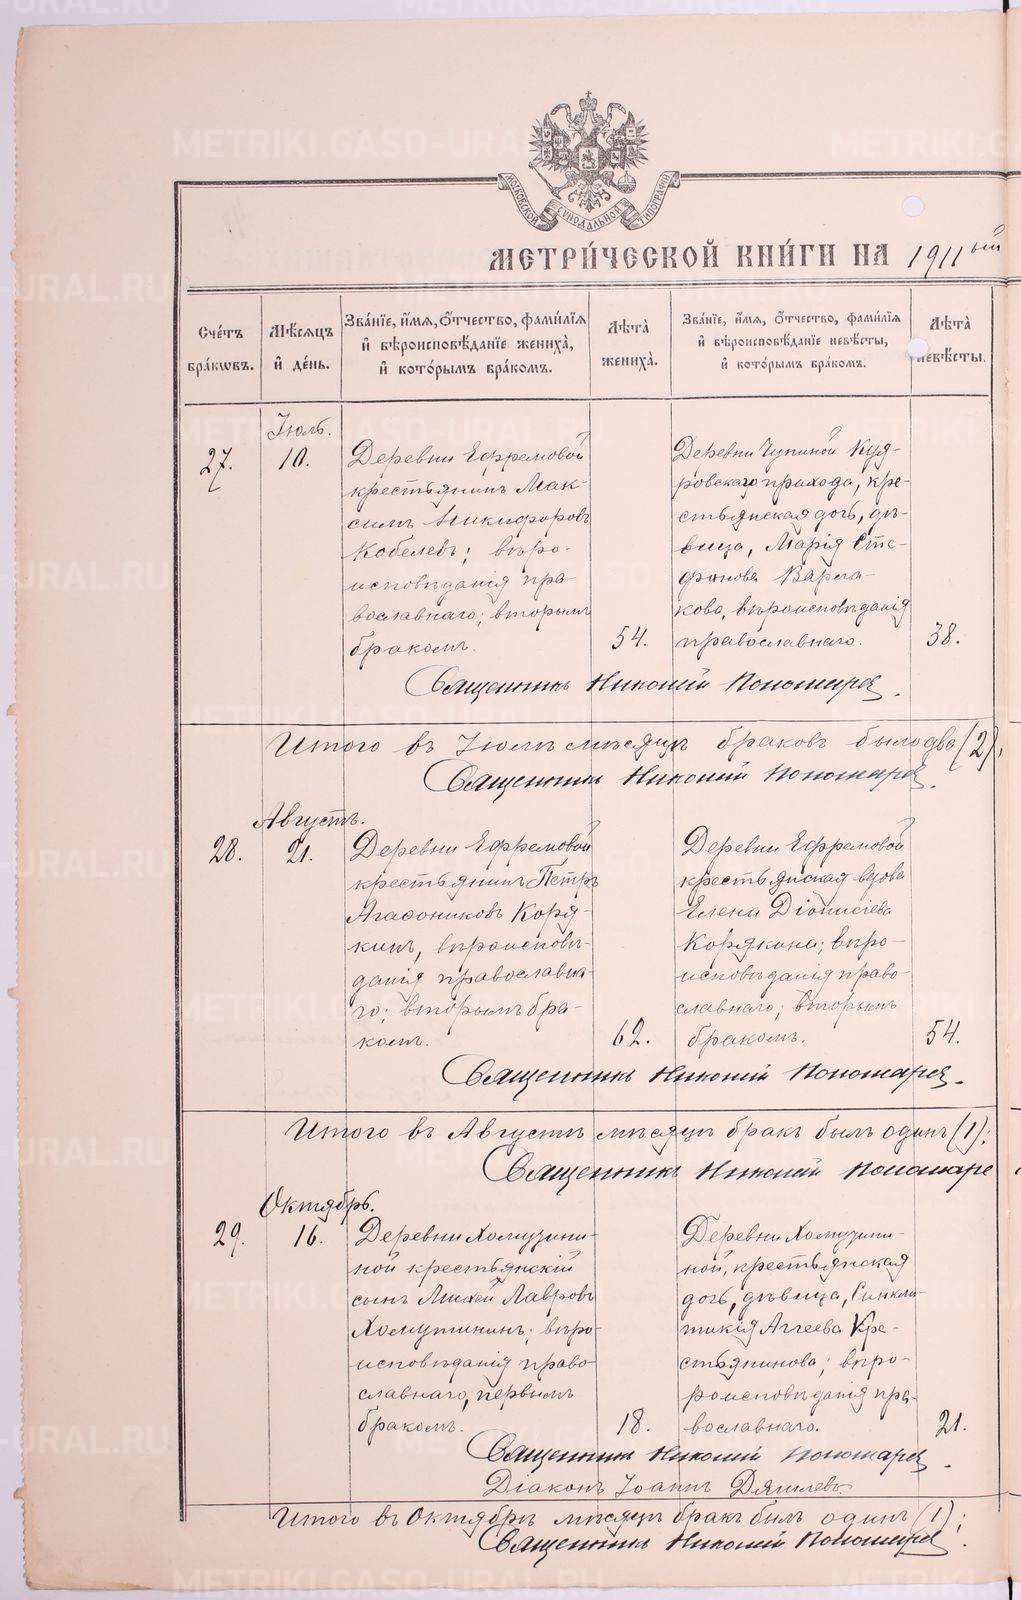 METRIKI.GASO-URAL.RU
МОСКОВСКОЙ СѴНОДАЛЬНОЙ ТИПОГРАФІИ
МЕТРИ́ЧЕСКОЙ КНИ́ГИ НА 1911ый
Сче́тъ бра́кѡвъ.
Мѣ́сѧцъ и҆ де́нь.
Зва́нїе, и҆́мѧ, ѻ҆́тчество, фами́лїѧ и҆ вѣроисповѣ́данїе жениха̀, и҆ кото́рымъ бра́комъ.
Лѣ̑та̀ жениха̀.
Зва́нїе, и҆́мѧ, ѻ҆́тчество, фами́лїѧ и҆ вѣроисповѣ́данїе невѣ́сты, и҆ кото́рымъ бра́комъ.
Лѣ̑та̀ невѣ́сты.
Іюль.
27.
10.
Деревни Ефремовой
крестьянинъ Мак-
симъ Никифоровъ
Кобелевъ; вѣро-
исповѣданія пра-
вославнаго; вторымъ
бракомъ.
54.
Деревни Чупиной Куя-
ровскаго прихода, кре-
стьянская дочь, дѣ-
вица, Марія Сте-
фанова Варла-
кова, вѣроисповѣданія
православнаго.
38.
Священникъ Николай Пономарев.
Итого въ Іюлѣ мѣсяцѣ браковъ было два (2);
Священникъ Николай Пономарев.
Августъ.
28.
21.
Деревни Ефремовой
крестьянинъ Петръ
Агафониковъ Коря-
кинъ, вѣроисповѣ-
данія православна-
го; вторымъ бра-
комъ.
62.
Деревни Ефремовой
крестьянская вдова
Елена Діонисіева
Корякина; вѣро-
исповѣданія право-
славнаго; вторымъ
бракомъ.
54.
Священникъ Николай Пономарев.
Итого въ Августѣ мѣсяцѣ бракъ былъ одинъ (1);
Священникъ Николай Пономаре
Октябрь.
29.
16.
Деревни Хомутини-
ной крестьянскій
сынъ Михей Лавровъ
Хомутининъ; вѣро-
исповѣданія право-
славнаго, первымъ
бракомъ.
18.
Деревни Хомутини-
ной, крестьянская
дочь, дѣвица, Синкли-
тикія Аггеева Кре-
стьянинова; вѣро-
роисповѣданія пра-
вославнаго.
21.
Священникъ Николай Пономарев.
Діаконъ Іоаннъ
Итого въ Октябрѣ мѣсяцѣ бракъ былъ одинъ (1);
Священникъ Николай Пономарев.